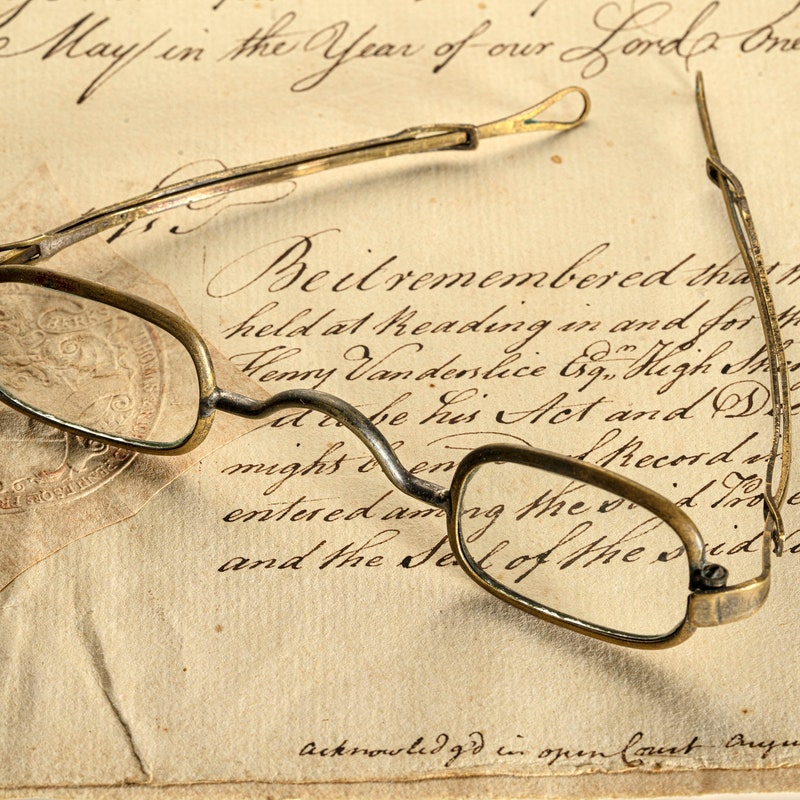 May in the Year of our Lord One
Be it remembered that
held at Reading in and for th
Henry Vanderslice Esqr High Sher
be his Act and D
might be of Record
entered among the said Pro
and the Seal of the said
acknowledg'd in open Court Augu
BERKS